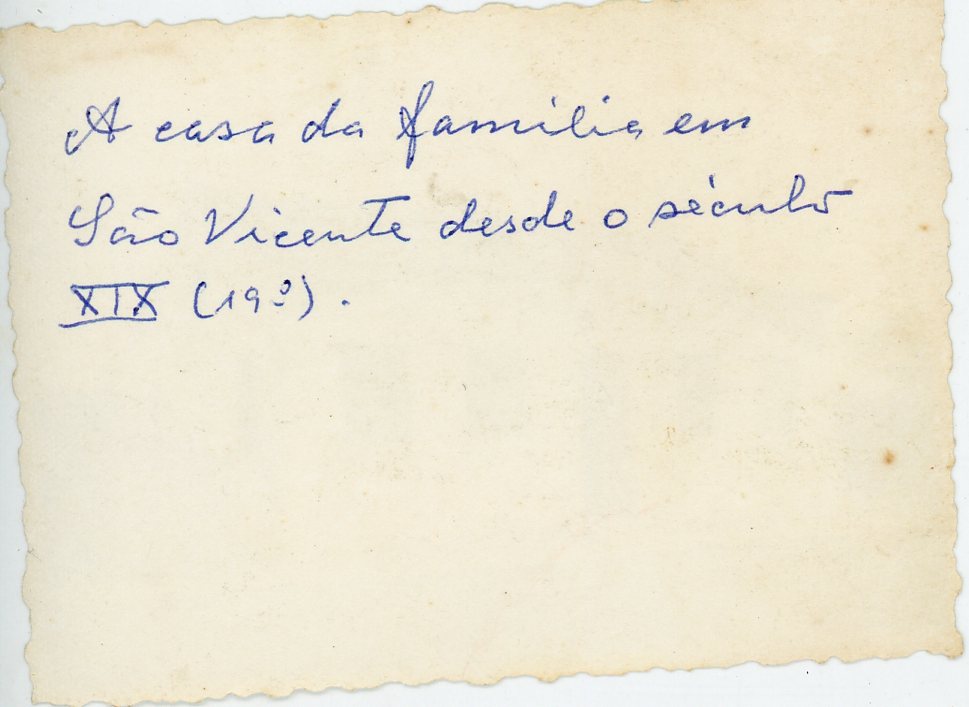 A casa da familia em
São Vicente desde o século
XIX (19º).